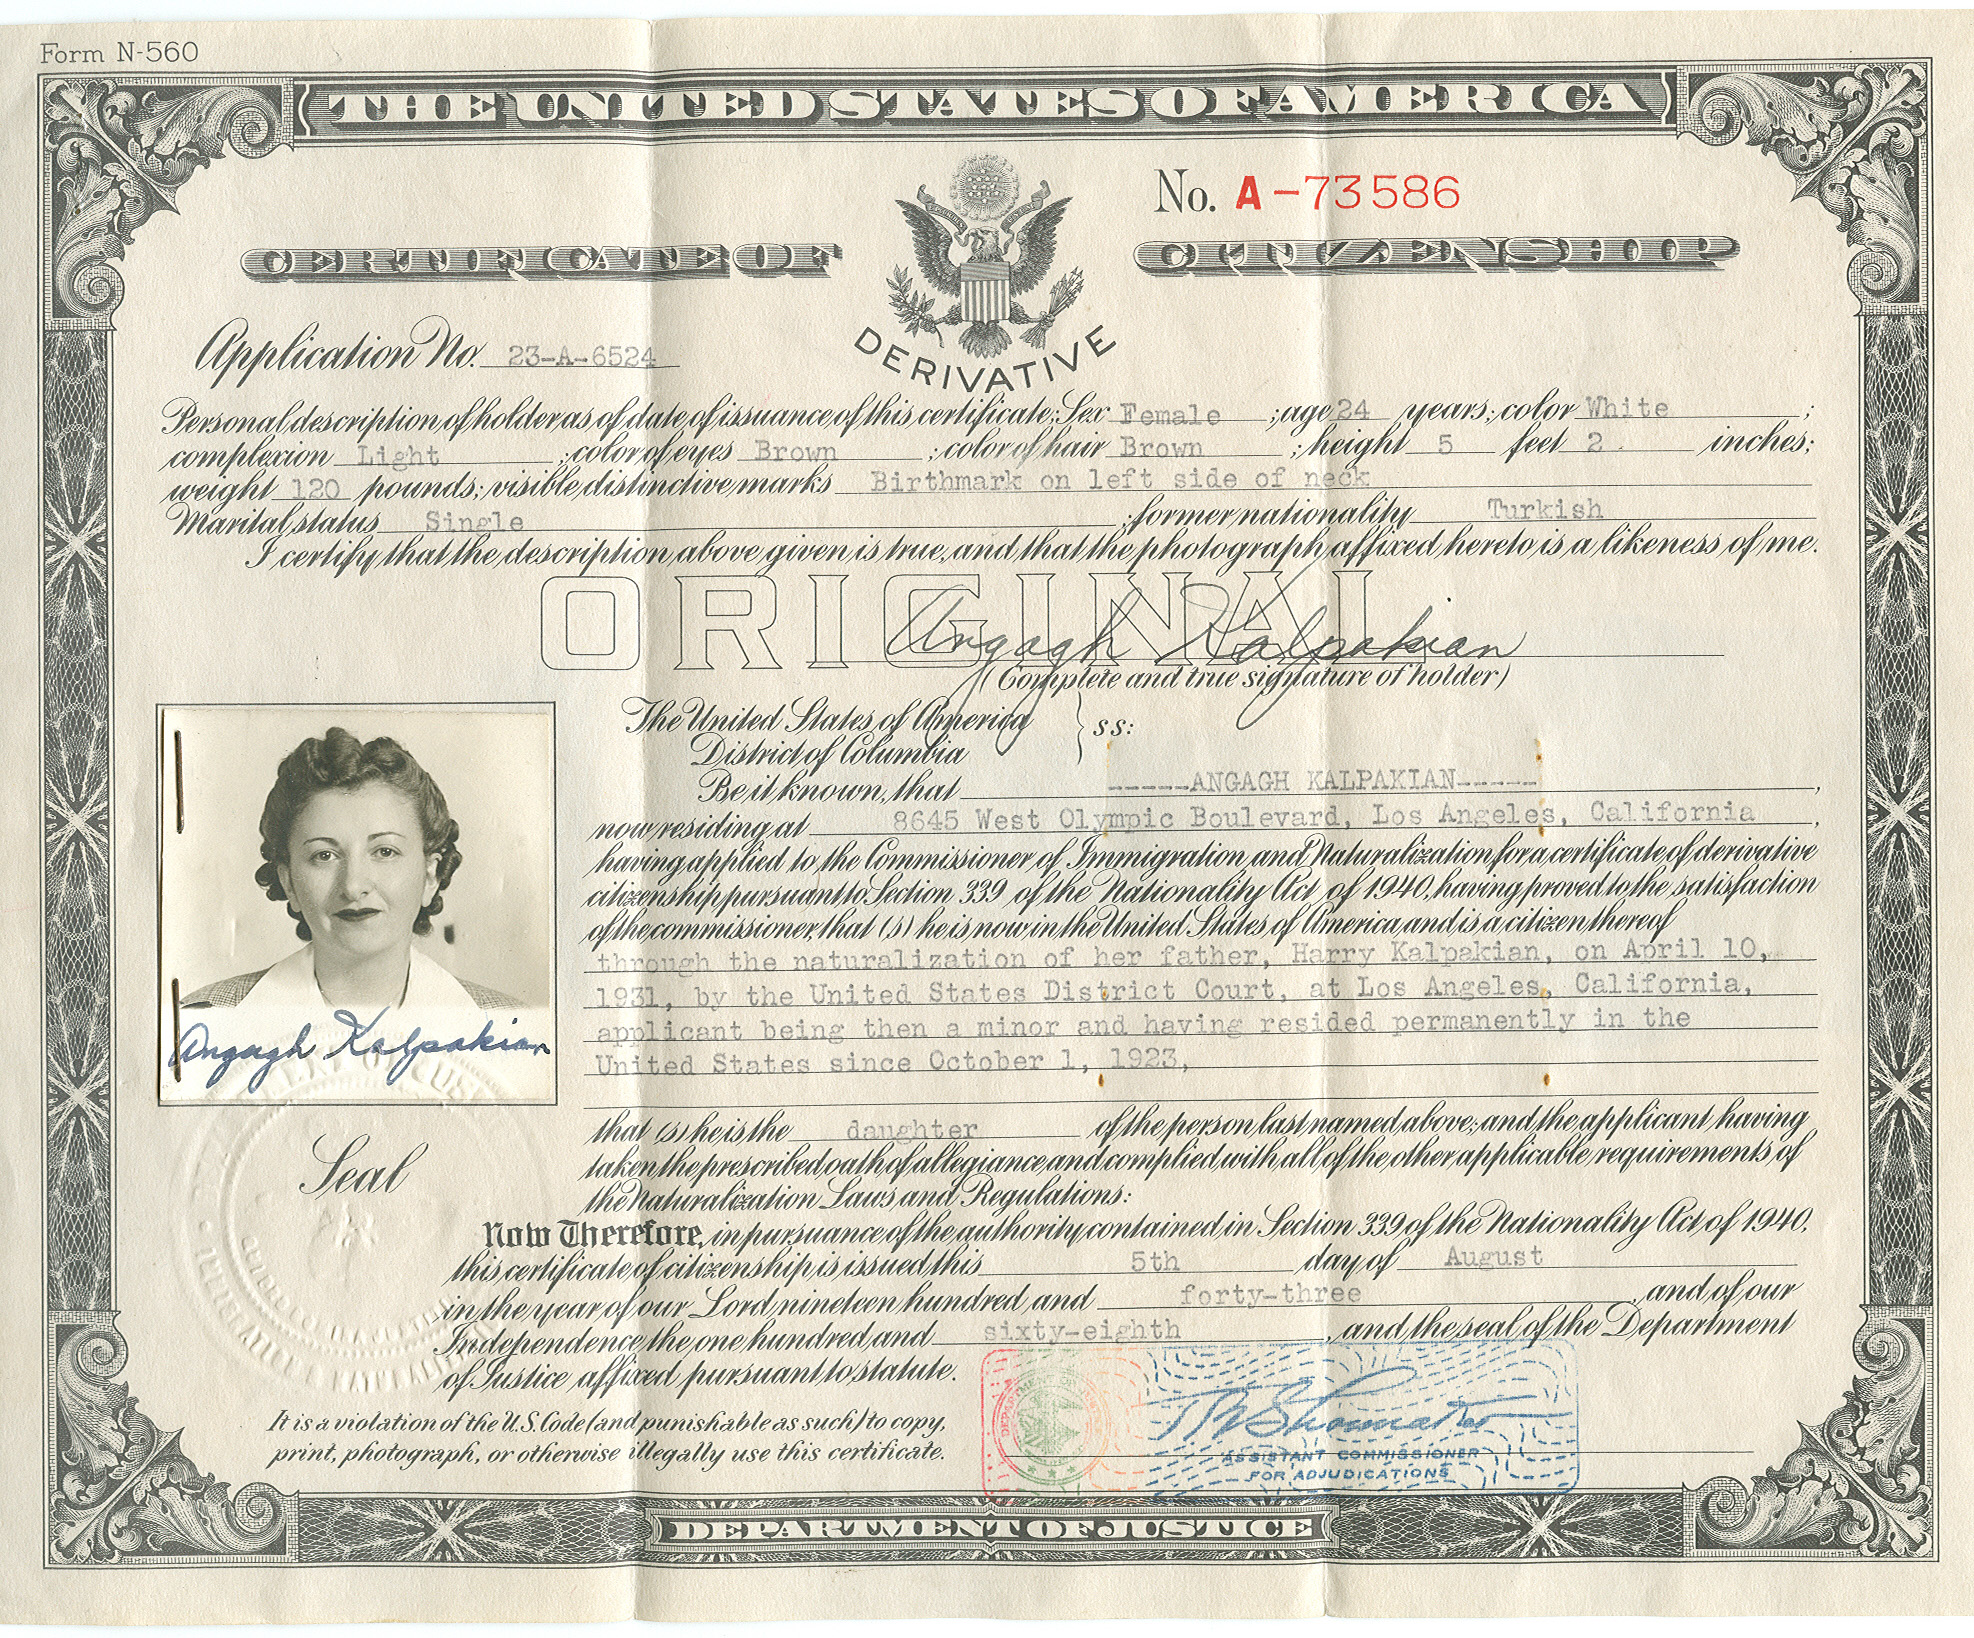 Form N-560
THE UNITED STATES OF AMERICA
No. A-73586
CERTIFICATE OF CITIZENSHIP
DERIVATIVE
Application No. 23-A-6524
Personal description of holder as of date of issuance of this certificate; Sex Female ; age 24 years; color White ;
complexion Light ; color of eyes Brown ; color of hair Brown ; height 5 feet 2 inches;
weight 120 pounds; visible distinctive marks Birthmark on left side of neck
Marital status Single ; former nationality Turkish
I certify that the description above given is true, and that the photograph affixed hereto is a likeness of me.
ORIGINAL
Angagh Kalpakian
(Complete and true signature of holder)
The United States of America
District of Columbia } ss:
Be it known, that -----ANGAGH KALPAKIAN----- ,
now residing at 8645 West Olympic Boulevard, Los Angeles, California ,
having applied to the Commissioner of Immigration and Naturalization for a certificate of derivative
citizenship pursuant to Section 339 of the Nationality Act of 1940, having proved to the satisfaction
of the commissioner, that (s) he is now in the United States of America and is a citizen thereof
through the naturalization of her father, Harry Kalpakian, on April 10,
1931, by the United States District Court, at Los Angeles, California,
applicant being then a minor and having resided permanently in the
United States since October 1, 1923,
Angagh Kalpakian
that (s) he is the daughter of the person last named above; and the applicant having
taken the prescribed oath of allegiance and complied with all of the other applicable requirements of
the Naturalization Laws and Regulations:
Seal
Now Therefore, in pursuance of the authority contained in Section 339 of the Nationality Act of 1940,
this certificate of citizenship is issued this 5th day of August
in the year of our Lord nineteen hundred and forty-three , and of our
Independence the one hundred and sixty-eighth , and the seal of the Department
of Justice affixed pursuant to statute.
It is a violation of the U.S. Code (and punishable as such) to copy,
print, photograph, or otherwise illegally use this certificate.
ASSISTANT COMMISSIONER
FOR ADJUDICATIONS
DEPARTMENT OF JUSTICE